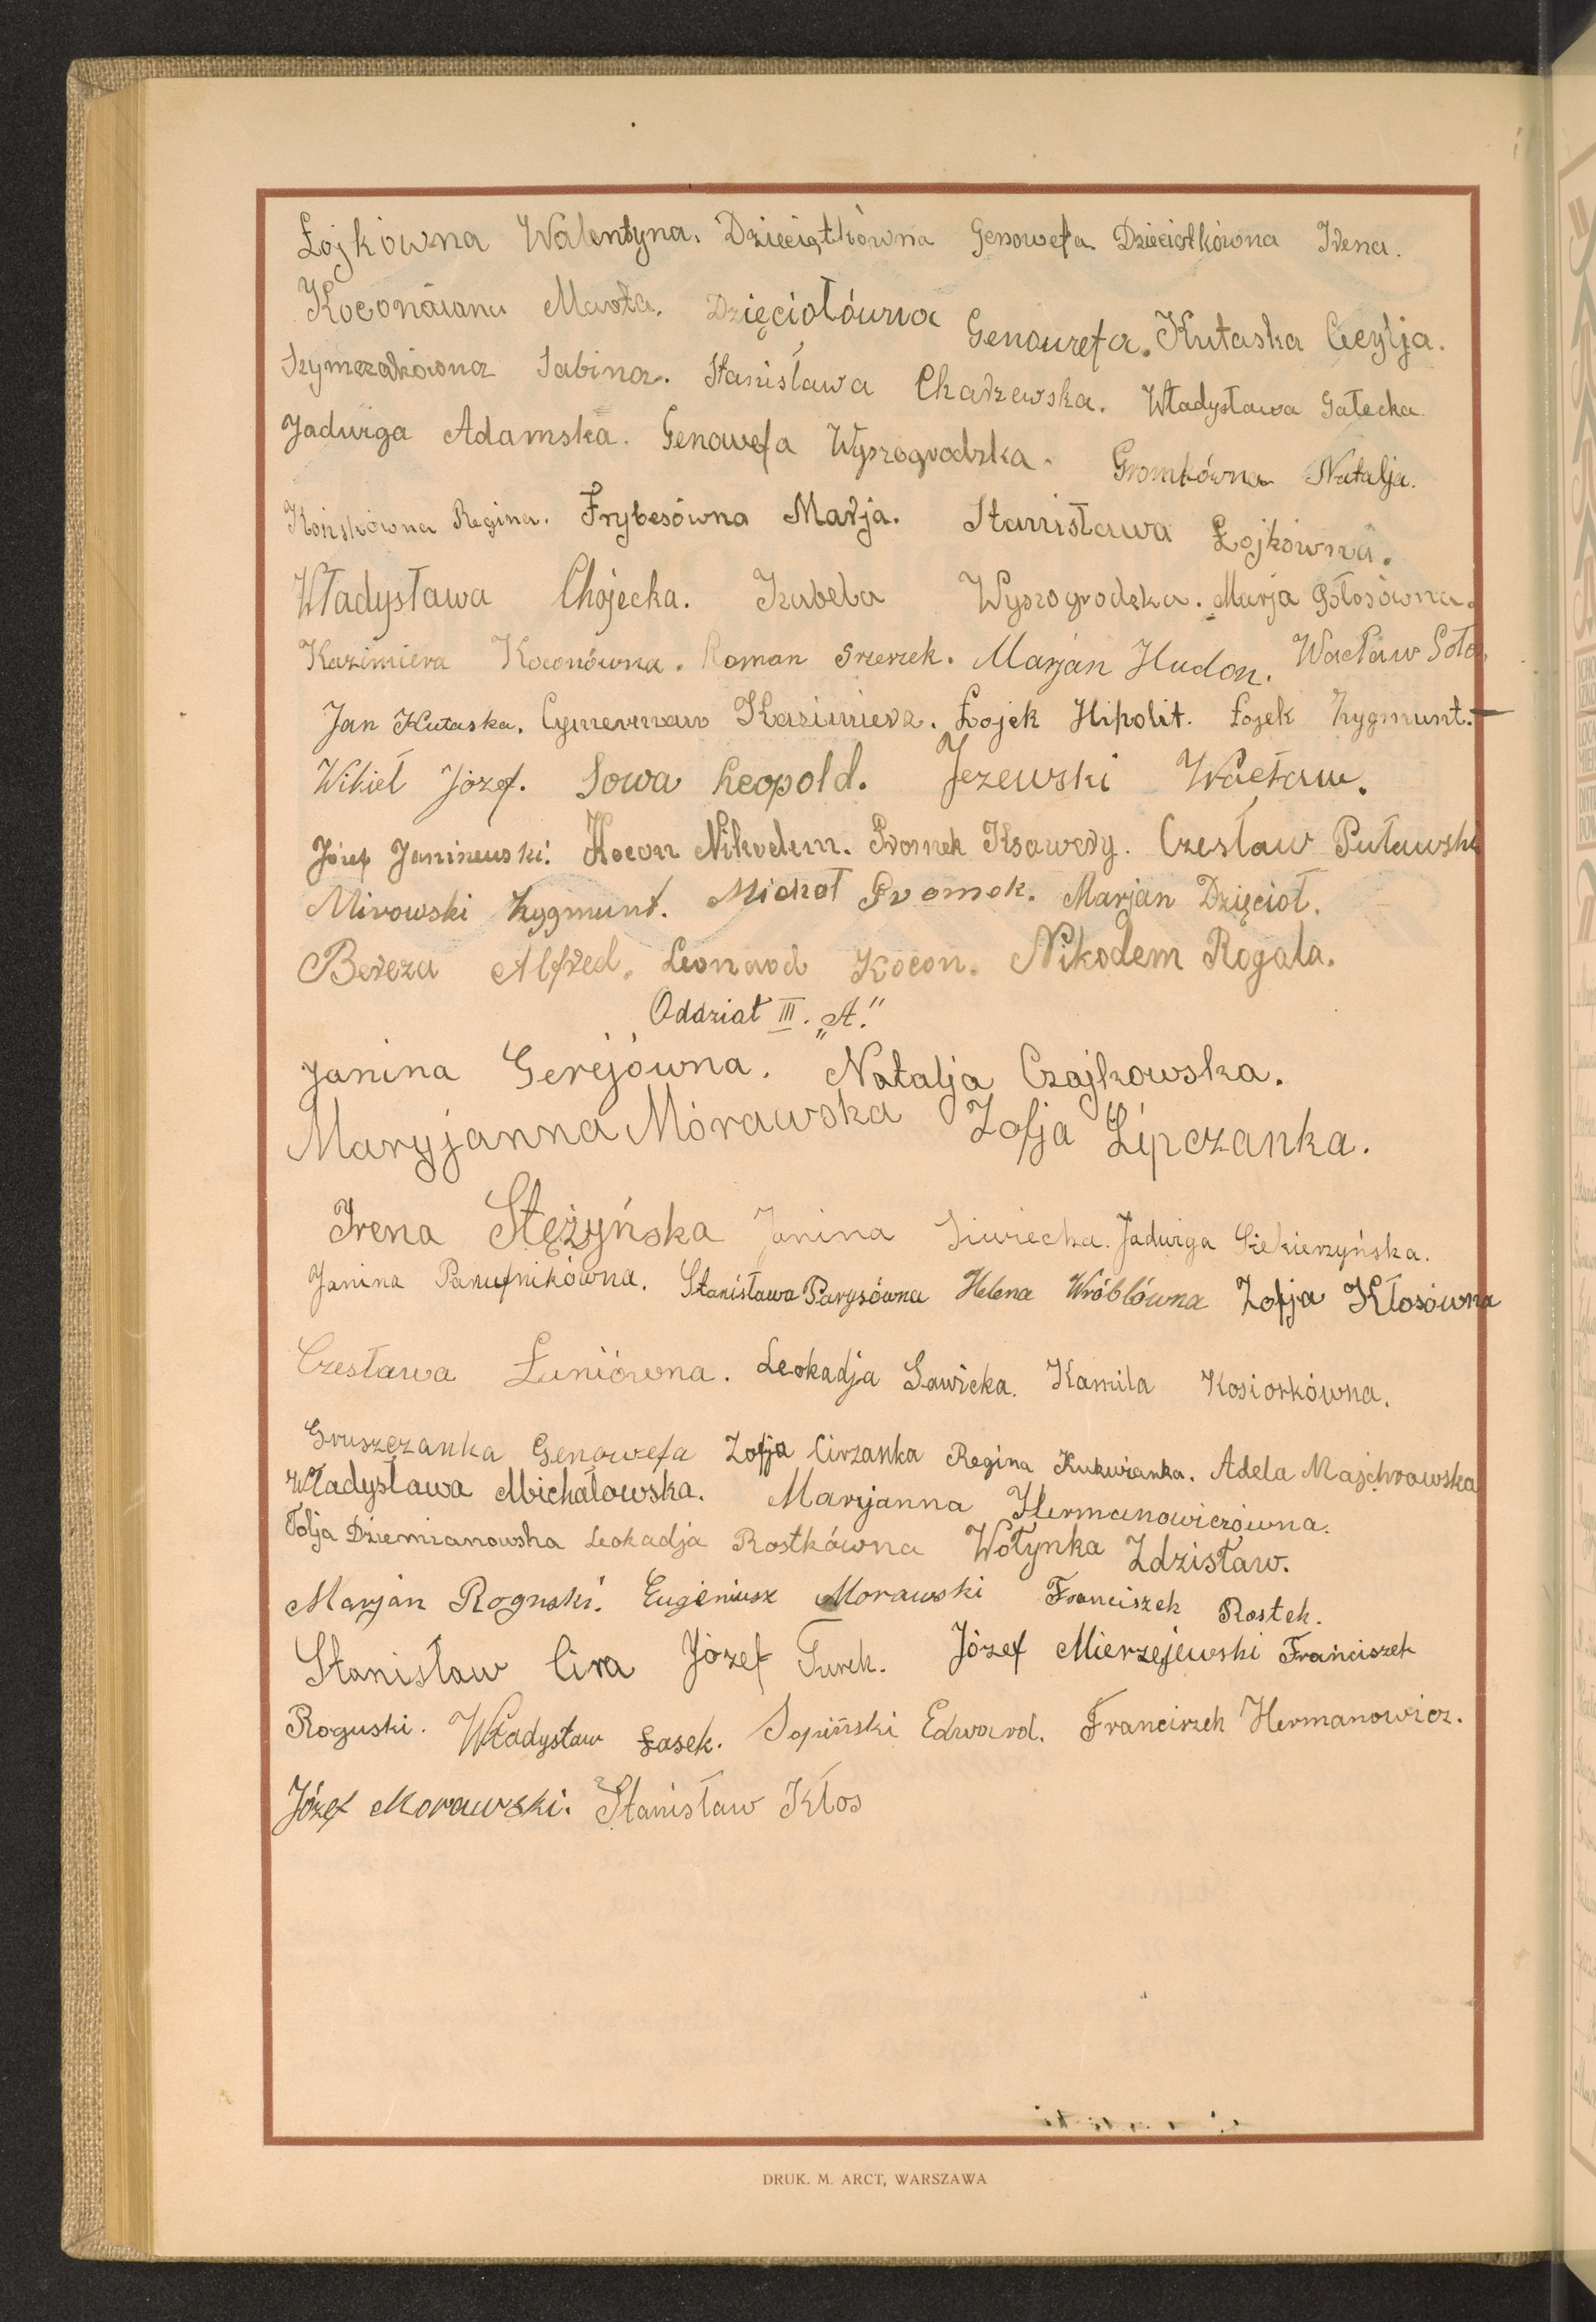 Łojkówna Walentyna. Dzieciątkówna Genowefa Dzieciołkówna Irena.
Koconówna Marta. Dzięciołówna Genowefa. Kutaska Cecylja.
Szymczakówna Sabina. Stanisława Chadzewska. Władysława Gałecka.
Jadwiga Adamska. Genowefa Wyszogrodzka. Gromkówna Natalja.
Końskówna Regina. Frybesówna Marja. Stanisława Łojkówna.
Władysława Chojecka. Izabela Wyszogrodzka. Marja Gołosówna.
Kazimiera Koconówna. Roman Srerzek. Marjan Hudon. Wacław Soło
Jan Kutaska. Cymerman Kazimierz. Łojek Hipolit. Łojek Zygmunt.
Wikieł Józef. Sowa Leopold. Jezewski Wacław.
Józef Janiszewski. Kocon Nikodem. Gromek Ksawery. Czesław Puławski
Mirowski Zygmunt. Michał Gromek. Marjan Dzięcioł.
Bereza Alfred. Leonard Kocon. Nikodem Rogala.
Oddział III. „A."
Janina Gerejówna. Natalja Czajkowska.
Maryjanna Morawska Zofja Lipczanka.
Irena Stężyńska Janina Siwiecka. Jadwiga Siekierzyńska.
Janina Panufnikówna. Stanisława Parysówna Helena Wróblówna Zofja Kłosówna
Czesława Łuniówna. Leokadja Sawicka. Kamila Kosiorkówna.
Gruszczanka Genowefa Zofja Cirzanka Regina Kukwianka. Adela Majchrowska
Władysława Michałowska. Maryjanna Hermanowiczówna.
Zofja Dziemianowska Leokadja Rostkówna Wołynka Zdzisław.
Marjan Roguski. Eugeniusz Morawski Franciszek Rostek.
Stanisław Cira Józef Turek. Józef Mierzejewski Franciszek
Roguski. Władysław Łasek. Sopiński Edward. Franciszek Hermanowicz.
Józef Morawski. Stanisław Kłos
DRUK. M. ARCT, WARSZAWA